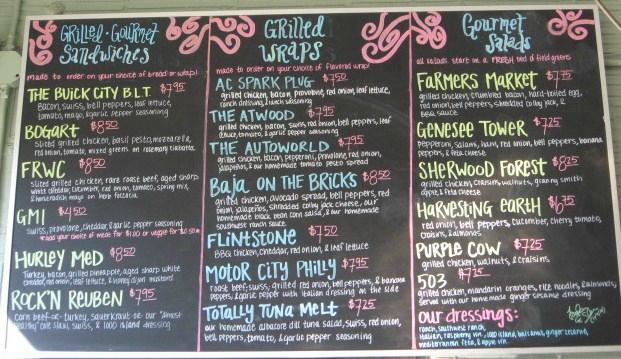 Grilled · Gourmet
Sandwiches
made to order on your choice of bread or wrap!
THE BUICK CITY B.L.T. $7.95
Bacon, swiss, bell peppers, leaf lettuce,
tomato, mayo, & garlic pepper seasoning
BOGART $8.50
Sliced grilled chicken, basil pesto, mozzarella,
red onion, tomato, mixed greens on rosemary ciabatta
FRWC $8.50
Sliced grilled chicken, rare roast beef, aged sharp
white cheddar, cucumber, red onion, tomato, spring mix,
& horseradish mayo on herb focaccia
GMI $4.50
Swiss, provolone, cheddar, & garlic pepper seasoning
HURLEY MED $8.50
Turkey, bacon, grilled pineapple, aged sharp white
cheddar, red onion, leaf lettuce, & honey dijon mustard
ROCK'N REUBEN $7.95
Corn beef -or- turkey, sauerkraut -or- our "almost
healthy" cole slaw, swiss, & 1000 island dressing
Grilled
Wraps
made to order on your choice of flavored wrap!
AC SPARK PLUG $7.50
grilled chicken, bacon, provolone, red onion, leaf lettuce,
ranch dressing, & ranch seasoning
THE ATWOOD $7.95
grilled chicken, bacon, swiss, red onion, bell peppers, leaf
lettuce, tomato, & garlic pepper seasoning
THE AUTOWORLD $7.95
grilled chicken, bacon, pepperoni, provolone, red onion,
jalapeños, & our homemade tomato pesto spread
BAJA ON THE BRICKS $8.50
grilled chicken, avocado spread, bell peppers, red
onion, jalapeños, shredded colby jack cheese, our
homemade black bean corn salsa, & our homemade
southwest ranch sauce
FLINTSTONE $7.50
BBQ chicken, cheddar, red onion, & leaf lettuce
MOTOR CITY PHILLY $7.95
roast beef, swiss, grilled red onion, bell peppers, & banana
peppers, & garlic pepper with italian dressing on the side
TOTALLY TUNA MELT $7.25
our homemade albacore dill tuna salad, swiss, red onion,
bell peppers, tomato, & garlic pepper seasoning
Gourmet
Salads
all salads start on a FRESH bed of field greens
FARMERS MARKET $7.75
grilled chicken, crumbled bacon, hard-boiled egg,
red onion, bell peppers, shredded colby jack, &
BBQ sauce
GENESEE TOWER $7.25
pepperoni, salami, ham, red onion, bell peppers, banana
peppers, & feta cheese
SHERWOOD FOREST $8.25
grilled chicken, craisins, walnuts, granny smith
apple, & feta cheese
HARVESTING EARTH $6.75
red onion, bell peppers, cucumber, cherry tomato,
craisins, & almonds
PURPLE COW $7.25
grilled chicken, walnuts, & craisins
503 $7.75
grilled chicken, mandarin oranges, rice noodles, & almonds,
served with our homemade ginger sesame dressing
our dressings:
ranch, southwest ranch,
italian, raspberry vin., 1000 island, balsamic, ginger sesame,
mediterranean feta, & apple vin.